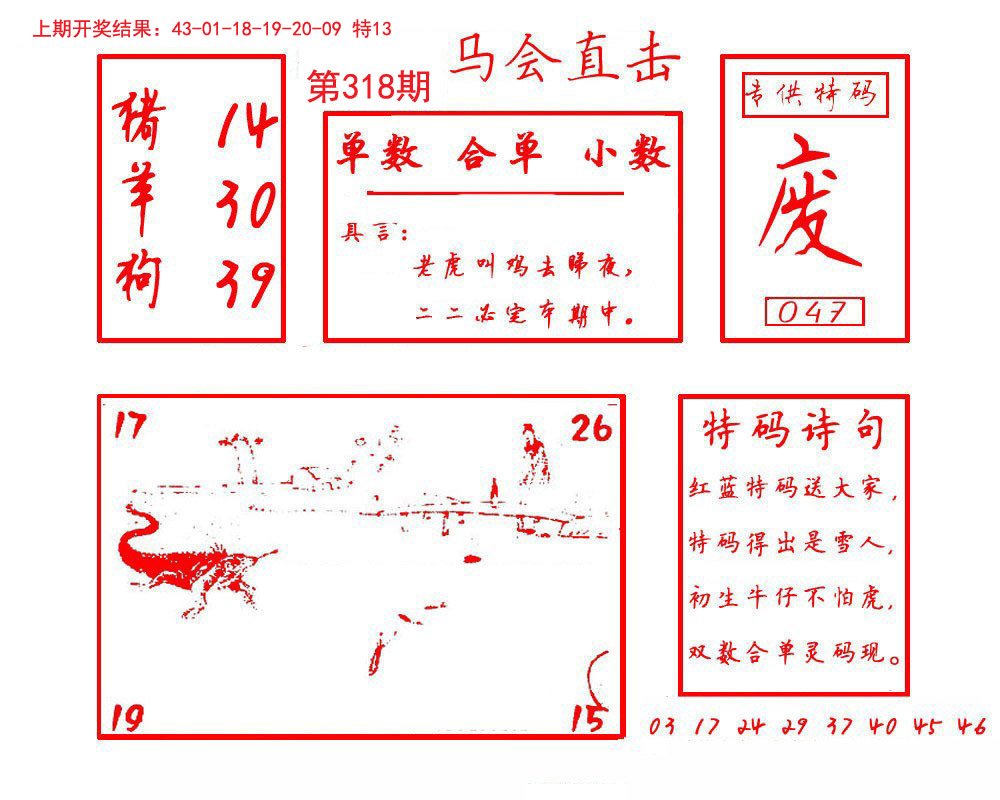 上期开奖结果：43-01-18-19-20-09 特13
马会直击
第318期
猪 14
羊 30
狗 39
单数 合单 小数
具言：
老虎叫鸡去睇夜，
二二必定本期中。
专供特码
废
047
17
26
19
15
特码诗句
红蓝特码送大家，
特码得出是雪人，
初生牛仔不怕虎，
双数合单灵码现。
03 17 24 29 37 40 45 46